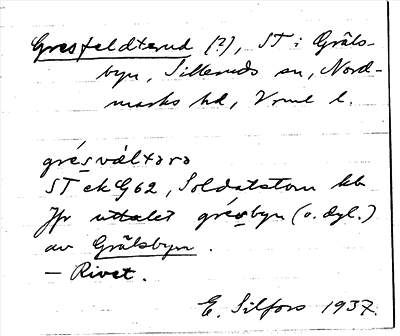 Gresfeldterud (?), ST i Gräls-
byn, Silleruds sn, Nord-
marks hd, Vrml l.
grésvältərə
ST ek G62, Soldatstom kb
Jfr uttalet grésbyn (o. dyl.)
av Grälsbyn.
– Rivet.
E. Silfors 1937.